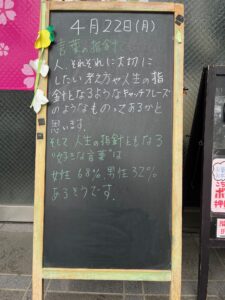 4月22日(月)
言葉の指針で
人、それぞれに大切に
したい考え方や人生の指
針となるようなキャッチフレーズ
のようなものってあるかと
思います。
そして人生の指針ともなる
"好きな言葉"は
女性68%、男性32%
あるそうです。